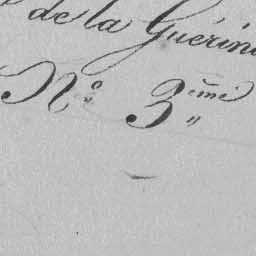 de la Guérin
N° 3ème